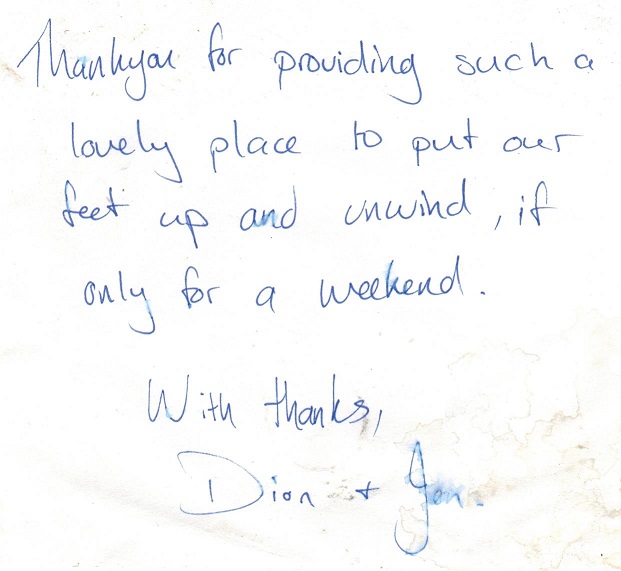 Thankyou for providing such a
lovely place to put our
feet up and unwind, if
only for a weekend.
With thanks,
Dion + Jen.